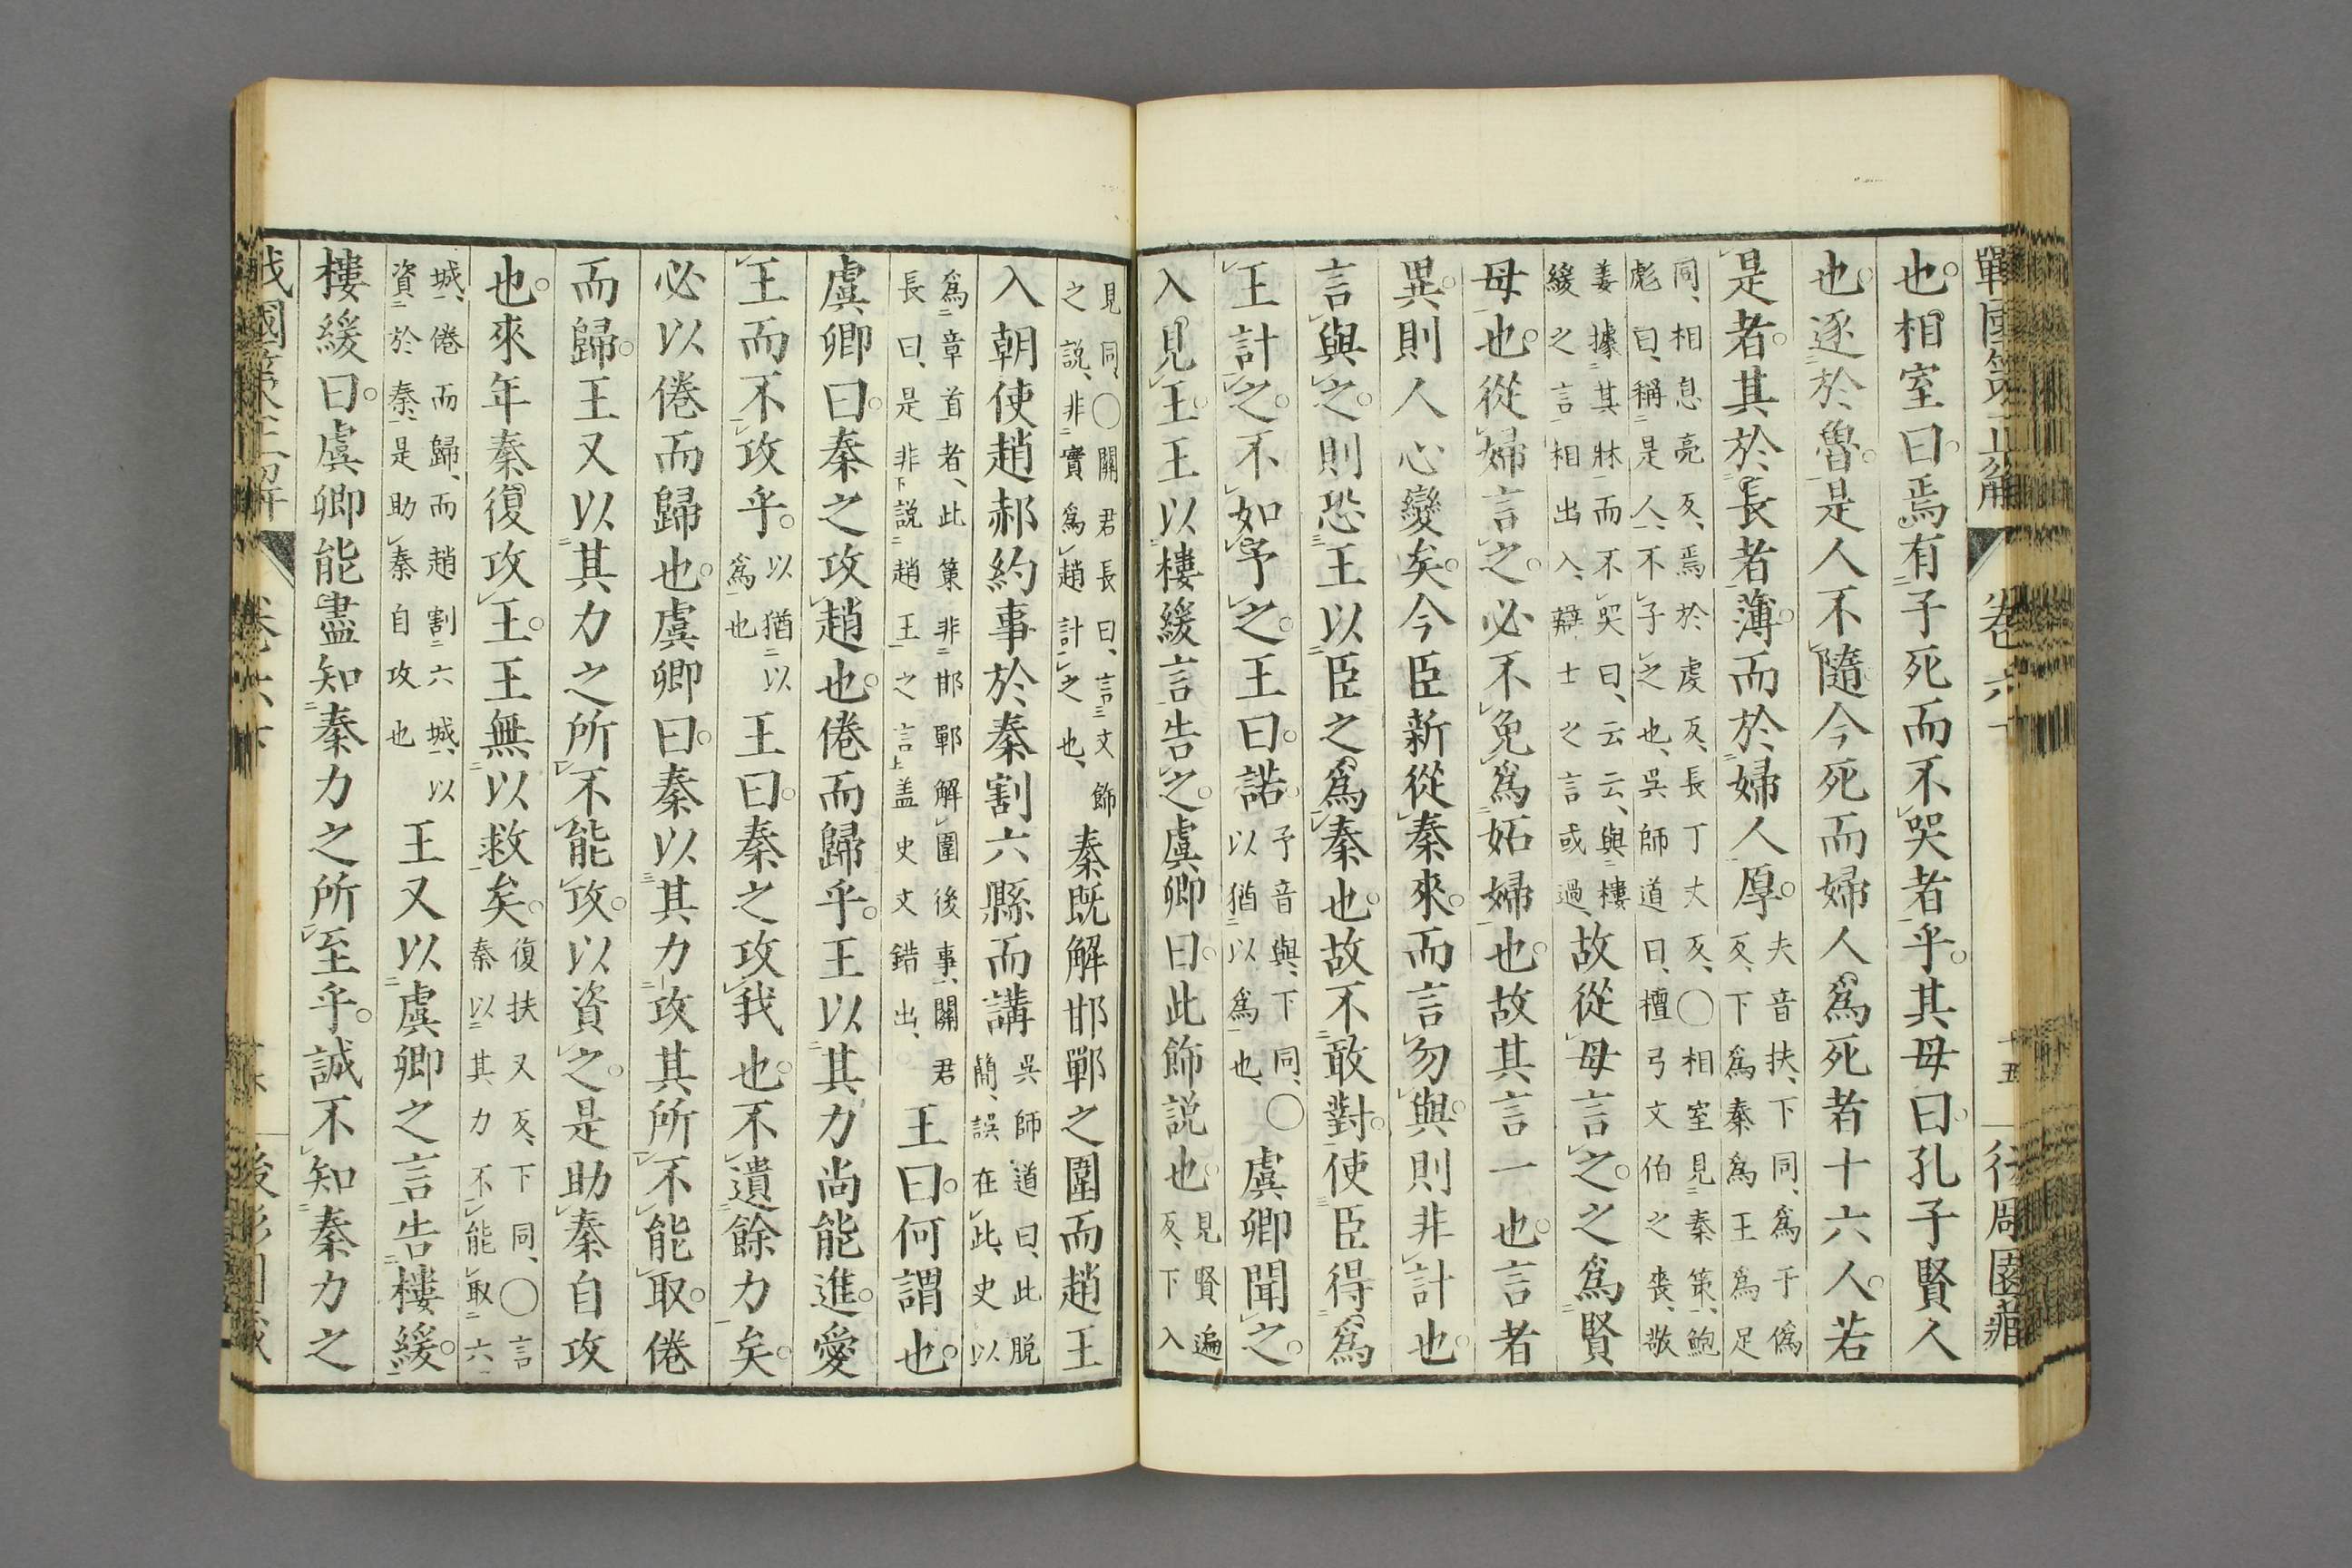 戰國策正解　卷六　十五
也。相室曰。焉有子死而不哭者乎。其母曰。孔子賢人
也。逐於魯。是人不隨今死而婦人爲死者十六人。若
是者。其於長者薄。而於婦人厚。夫音扶、下同、爲于僞反、下爲秦爲王爲足
同、相息亮反、焉於虔反、長丁丈反、〇相室見秦策、鮑彪曰、稱是人、不子之也、吳師道曰、檀弓文伯之喪、敬
姜據其牀而不哭曰、云云、與樓緩之言相出入、辯士之言或過、故從母言之。之爲賢
母也。從婦言之。必不免爲妬婦也。故其言一也。言者
異。則人心變矣。今臣新從秦來。而言勿與。則非計也。
言與之。則恐王以臣之爲秦也。故不敢對。使臣得爲
王計之。不如予之。王曰。諾。予音與、下同、〇以猶以爲也、虞卿聞之。
入見王。王以樓緩言告之。虞卿曰。此飾説也。見賢遍反、下入
見同、〇關君長曰、言文飾之説、非實爲趙計之也、秦既解邯鄲之圍而趙王
入朝使趙郝約事於秦割六縣而講吳師道曰、此脱簡、誤在此、史以
爲章首者、此策非邯鄲解圍後事、關君長曰、是非説趙王之言盖史文錯出、王曰。何謂也。
虞卿曰。秦之攻趙也。倦而歸乎。王以其力尚能進。愛
王而不攻乎。以猶以爲也王曰。秦之攻我也。不遺餘力矣。
必以倦而歸也。虞卿曰。秦以其力攻其所不能取。倦
而歸。王又以其力之所不能攻。以資之。是助秦自攻
也。來年秦復攻王。王無以救矣。復扶又反、下同、〇言秦以其力不能取六
城、倦而歸、而趙割六城、以資於秦、是助秦自攻也王又以虞卿之言告樓緩。
樓緩曰。虞卿能盡知秦力之所至乎。誠不知秦力之